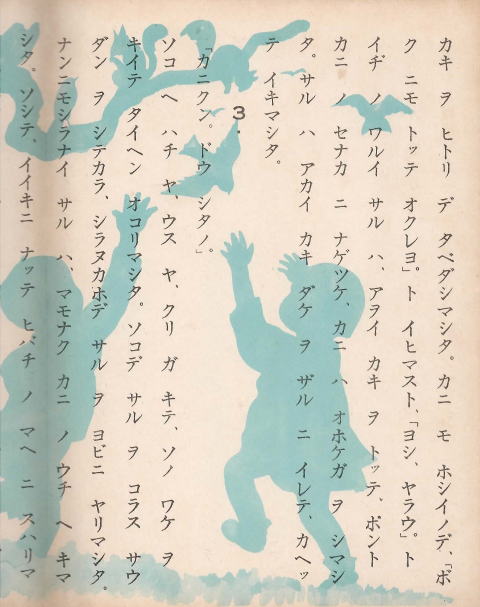 カキ ヲ ヒトリ デ タベダシマシタ。カニ モ ホシイノデ、「ボ
ク ニモ トッテ オクレヨ」。ト イヒマスト、「ヨシ、ヤラウ」。ト
イヂ ノ ワルイ サル ハ、アヲイ カキ ヲ トッテ、ポント
カニ ノ セナカ ニ ナゲツケ、カニ ハ オホケガ ヲ シマシ
タ。サル ハ アカイ カキ ダケ ヲ ザル ニ イレテ、カヘッ
テ イキマシタ。
3.
「カニクン。ドウ シタノ。」
ソコ ヘ ハチ ヤ、ウス ヤ、クリ ガ キテ、ソノ ワケ ヲ
キイテ タイヘン オコリマシタ。ソコデ サル ヲ コラス サウ
ダン ヲ シテカラ、シラヌカホデ サル ヲ ヨビニ ヤリマシタ。
ナンニモシラナイ サル ハ、マモナク カニ ノ ウチ ヘ キマ
シタ。ソシテ、イイキニ ナッテ ヒバチ ノ マヘ ニ スハリマ